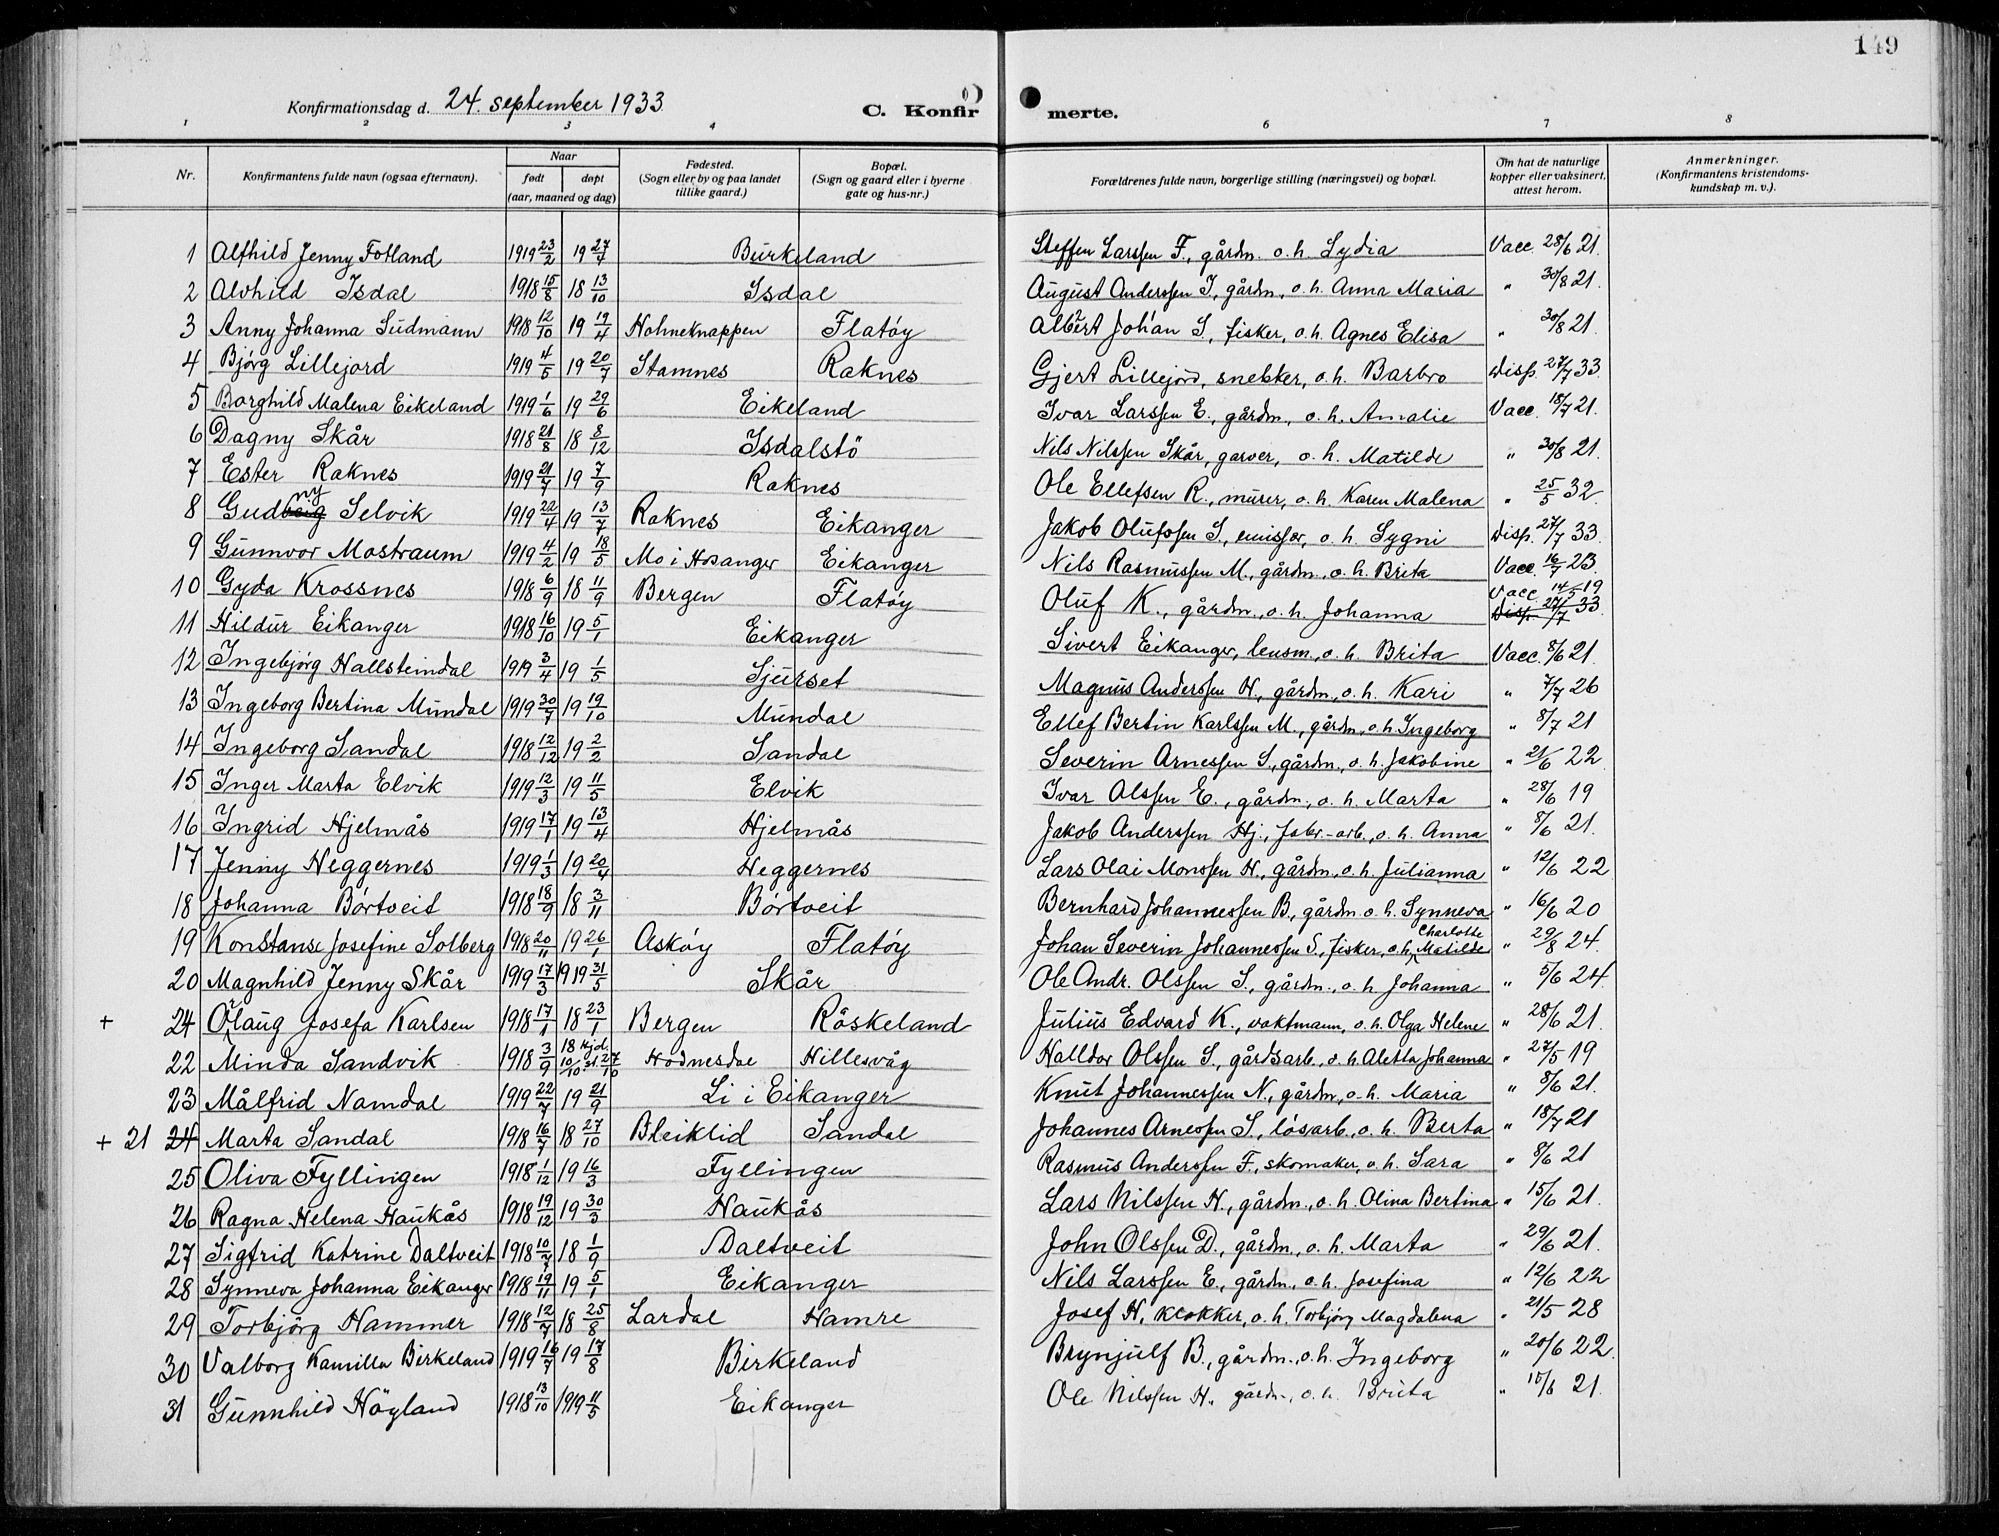 149
Konfirmationsdag d. 24. september 1933
C. Konfir merte.
1 2 3 4 6 7 8
Nr. Konfirmantens fulde navn (ogsaa efternavn). Naar født døpt (aar, maaned og dag) Fødested. (Sogn eller by og paa landet tillike gaard.) Bopæl. (Sogn og gaard eller i byerne gate og hus-nr.) Forældrenes fulde navn, borgerlige stilling (næringsvei) og bopæl. Om hat de naturlige kopper eller vaksinert, attest herom. Anmerkninger. (Konfirmantens kristendoms-kundskap m. v.).
1 Alfhild Jenny Fotland 1919 23/2 19 27/4 Birkeland Steffen Larssen F., gårdm. o. h. Lydia Vacc. 28/6 21.
2 Alvhild Isdal 1918 15/8 18 13/10 Isdal August Anderssen I, gårdm, o. h. Anna Maria " 30/8 21.
3 Anny Johanna Sudmann 1918 12/10 19 19/4 Hohneknappen Flatøy Albert Johan S, fisker, o. h. Agnes Elisa " 30/8 21.
4 Bjørg Lillejord 1919 4/5 19 20/7 Stamnes Raknes Gjert Lillejord, snekker, o. h. Barbro Disp. 27/7 33.
5 Borghild Malena Eikeland 1919 1/6 19 29/6 Eikeland Ivar Larssen E., gårdm, o. h. Amalie Vacc. 18/7 21.
6 Dagny Skår 1918 21/8 18 8/12 Isdalstö Nils Nilssen Skår, garver, o. h. Matilde " 30/8 21.
7 Ester Raknes 1919 21/7 19 7/9 Raknes Ole Ellefsen R., murer, o. h. Karen Malena " 25/5 32.
8 Gudny Selvik 1919 22/4 19 13/7 Raknes Eikanger Jakob Olufssen S., emissær, o. h. Sygni Disp. 27/7 33.
9 Gunnvor Mostraum 1919 4/2 19 18/5 Mo i Hosanger Eikanger Nils Rasmussen M., gårdm., o. h. Brita Vacc. 16/7 23.
10 Gyda Krossnes 1918 6/9 18 11/9 Bergen Flatøy Oluf K., gårdm, o. h. Johanna Vacc 14/5 19 Disp. 27/7 33.
11 Hildur Eikanger 1918 16/10 19 5/1 Eikanger Sivert Eikanger, lensm., o. h. Brita Vacc. 8/6 21.
12 Ingebjørg Hallsteindal 1919 3/4 19 1/5 Sjurset Magnus Anderssen H., gårdm, o. h. Kari " 7/7 26
13 Ingeborg Bertina Mundal 1919 30/7 19 19/10 Mundal Ellef Bertin Karlssen M., gårdm, o. h Ingeborg " 8/7 21
14 Ingeborg Sandal 1918 12/12 19 2/2 Sandal Severin Arnessen S., gårdm., o. h. Jakobine " 21/6 22.
15 Inger Marta Elvik 1919 12/3 19 11/5 Elvik Ivar Olssen E., gårdm., o. h. Marta " 28/6 19
16 Ingrid Hjelmås 1919 17/1 19 13/4 Hjelmås Jakob Anderssen Hj., fabr.-arb., o. h. Anna " 8/6 21.
17 Jenny Heggernes 1919 1/3 19 20/4 Heggernes Lars Olai Monssen H., gårdm, o. h. Julianna " 12/6 22
18 Johanna Börtveit 1918 18/9 18 3/11 Börtveit Bernhard Johannessen B., gårdm o. h. Synneva " 16/6 20
19 Konstanse Josefine Solberg 1918 20/11 19 26/1 Askøy Flatøy Johan Severin Johannessen S., fisker, o. h. Charlotte Matilde " 29/8 24.
20 Magnhild Jenny Skår 1919 17/3 1919 31/5 Skår Ole Andr. Olssen S., gårdm., o. h. Johanna " 5/6 24.
+ 24 Olaug Josefa Karlsen 1918 17/1 18 23/1 Bergen Röskeland Julius Edvard K., vaktmann, o. h. Olga Helene " 28/6 21.
22 Minda Sandvik 1918 3/9 18 Hjd. 10/10 st. 27/10 Hodnesdal Hillesvåg Halldor Olssen S., gårdsarb., o. h Aletta Johanna " 27/5 19
23 Målfrid Namdal 1919 22/7 19 21/9 Li i Eikanger Knut Johannessen N., gårdm, o. h. Maria " 8/6 21.
+ 21 24 Marta Sandal 1918 16/7 18 27/10 Bleiklid Sandal Johannes Arnessen S., lösarb., o. h. Berta " 18/7 21
25 Oliva Fyllingen 1918 1/12 19 16/3 Fyllingen Rasmus Anderssen F., skomaker, o. h. Sara " 8/6 21
26 Ragna Helena Haukås 1918 19/12 19 30/3 Haukås Lars Nilssen H., gårdm., o. h. Olina Bertina " 15/6 21.
27 Sigfrid Katrine Daltveit 1918 10/7 18 1/9 Daltveit John Olssen D., gårdm., o. h. Marta " 29/6 21.
28 Synneva Johanna Eikanger 1918 19/11 19 5/1 Eikanger Nils Larssen E., gårdm, o. h. Josefina " 12/6 22
29 Torbjörg Hammer 1918 12/7 18 25/8 Lardal Hamre Josef H, klokker, o. h. Torbjörg Magdalena " 21/5 28
30 Valborg Kamilla Birkeland 1919 16/7 19 17/8 Birkeland Brynjulf B., gårdm., o. h. Ingeborg " 20/6 22.
31 Gunnhild Höyland 1918 13/10 1919 11/5 Eikanger Ole Nilssen H. gårdm., o. h. Brita " 15/6 21.